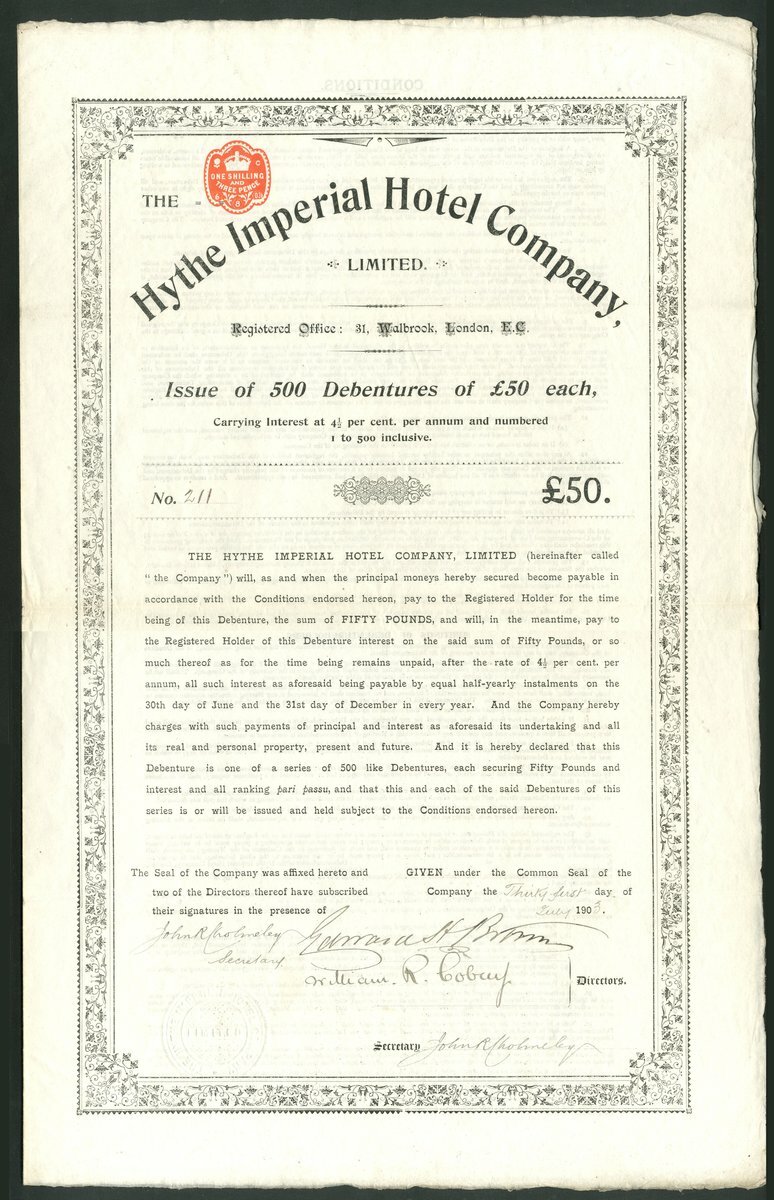 CONDITIONS.
ONE SHILLING
AND
THREE PENCE
THE
Hythe Imperial Hotel Company,
LIMITED.
Registered Office: 31, Walbrook, London, E.C.
Issue of 500 Debentures of £50 each,
Carrying Interest at 4½ per cent. per annum and numbered
1 to 500 inclusive.
No. 211
£50.
THE HYTHE IMPERIAL HOTEL COMPANY, LIMITED (hereinafter called
“the Company”) will, as and when the principal moneys hereby secured become payable in
accordance with the Conditions endorsed hereon, pay to the Registered Holder for the time
being of this Debenture, the sum of FIFTY POUNDS, and will, in the meantime, pay to
the Registered Holder of this Debenture interest on the said sum of Fifty Pounds, or so
much thereof as for the time being remains unpaid, after the rate of 4½ per cent. per
annum, all such interest as aforesaid being payable by equal half-yearly instalments on the
30th day of June and the 31st day of December in every year. And the Company hereby
charges with such payments of principal and interest as aforesaid its undertaking and all
its real and personal property, present and future. And it is hereby declared that this
Debenture is one of a series of 500 like Debentures, each securing Fifty Pounds and
interest and all ranking pari passu, and that this and each of the said Debentures of this
series is or will be issued and held subject to the Conditions endorsed hereon.
The Seal of the Company was affixed hereto and
two of the Directors thereof have subscribed
their signatures in the presence of
GIVEN under the Common Seal of the
Company the Thirty first day of
July 1903.
John R Cholmeley
Secretary.
William. R.
Directors.
Secretary John R Cholmeley